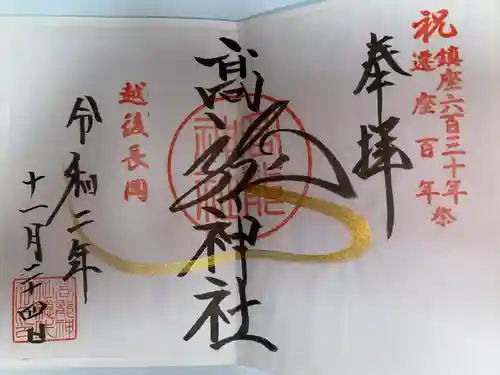 祝
鎮座六百三十年祭
遷座百年
奉拝
高龍神社
越後長岡
令和二年
十一月二十四日